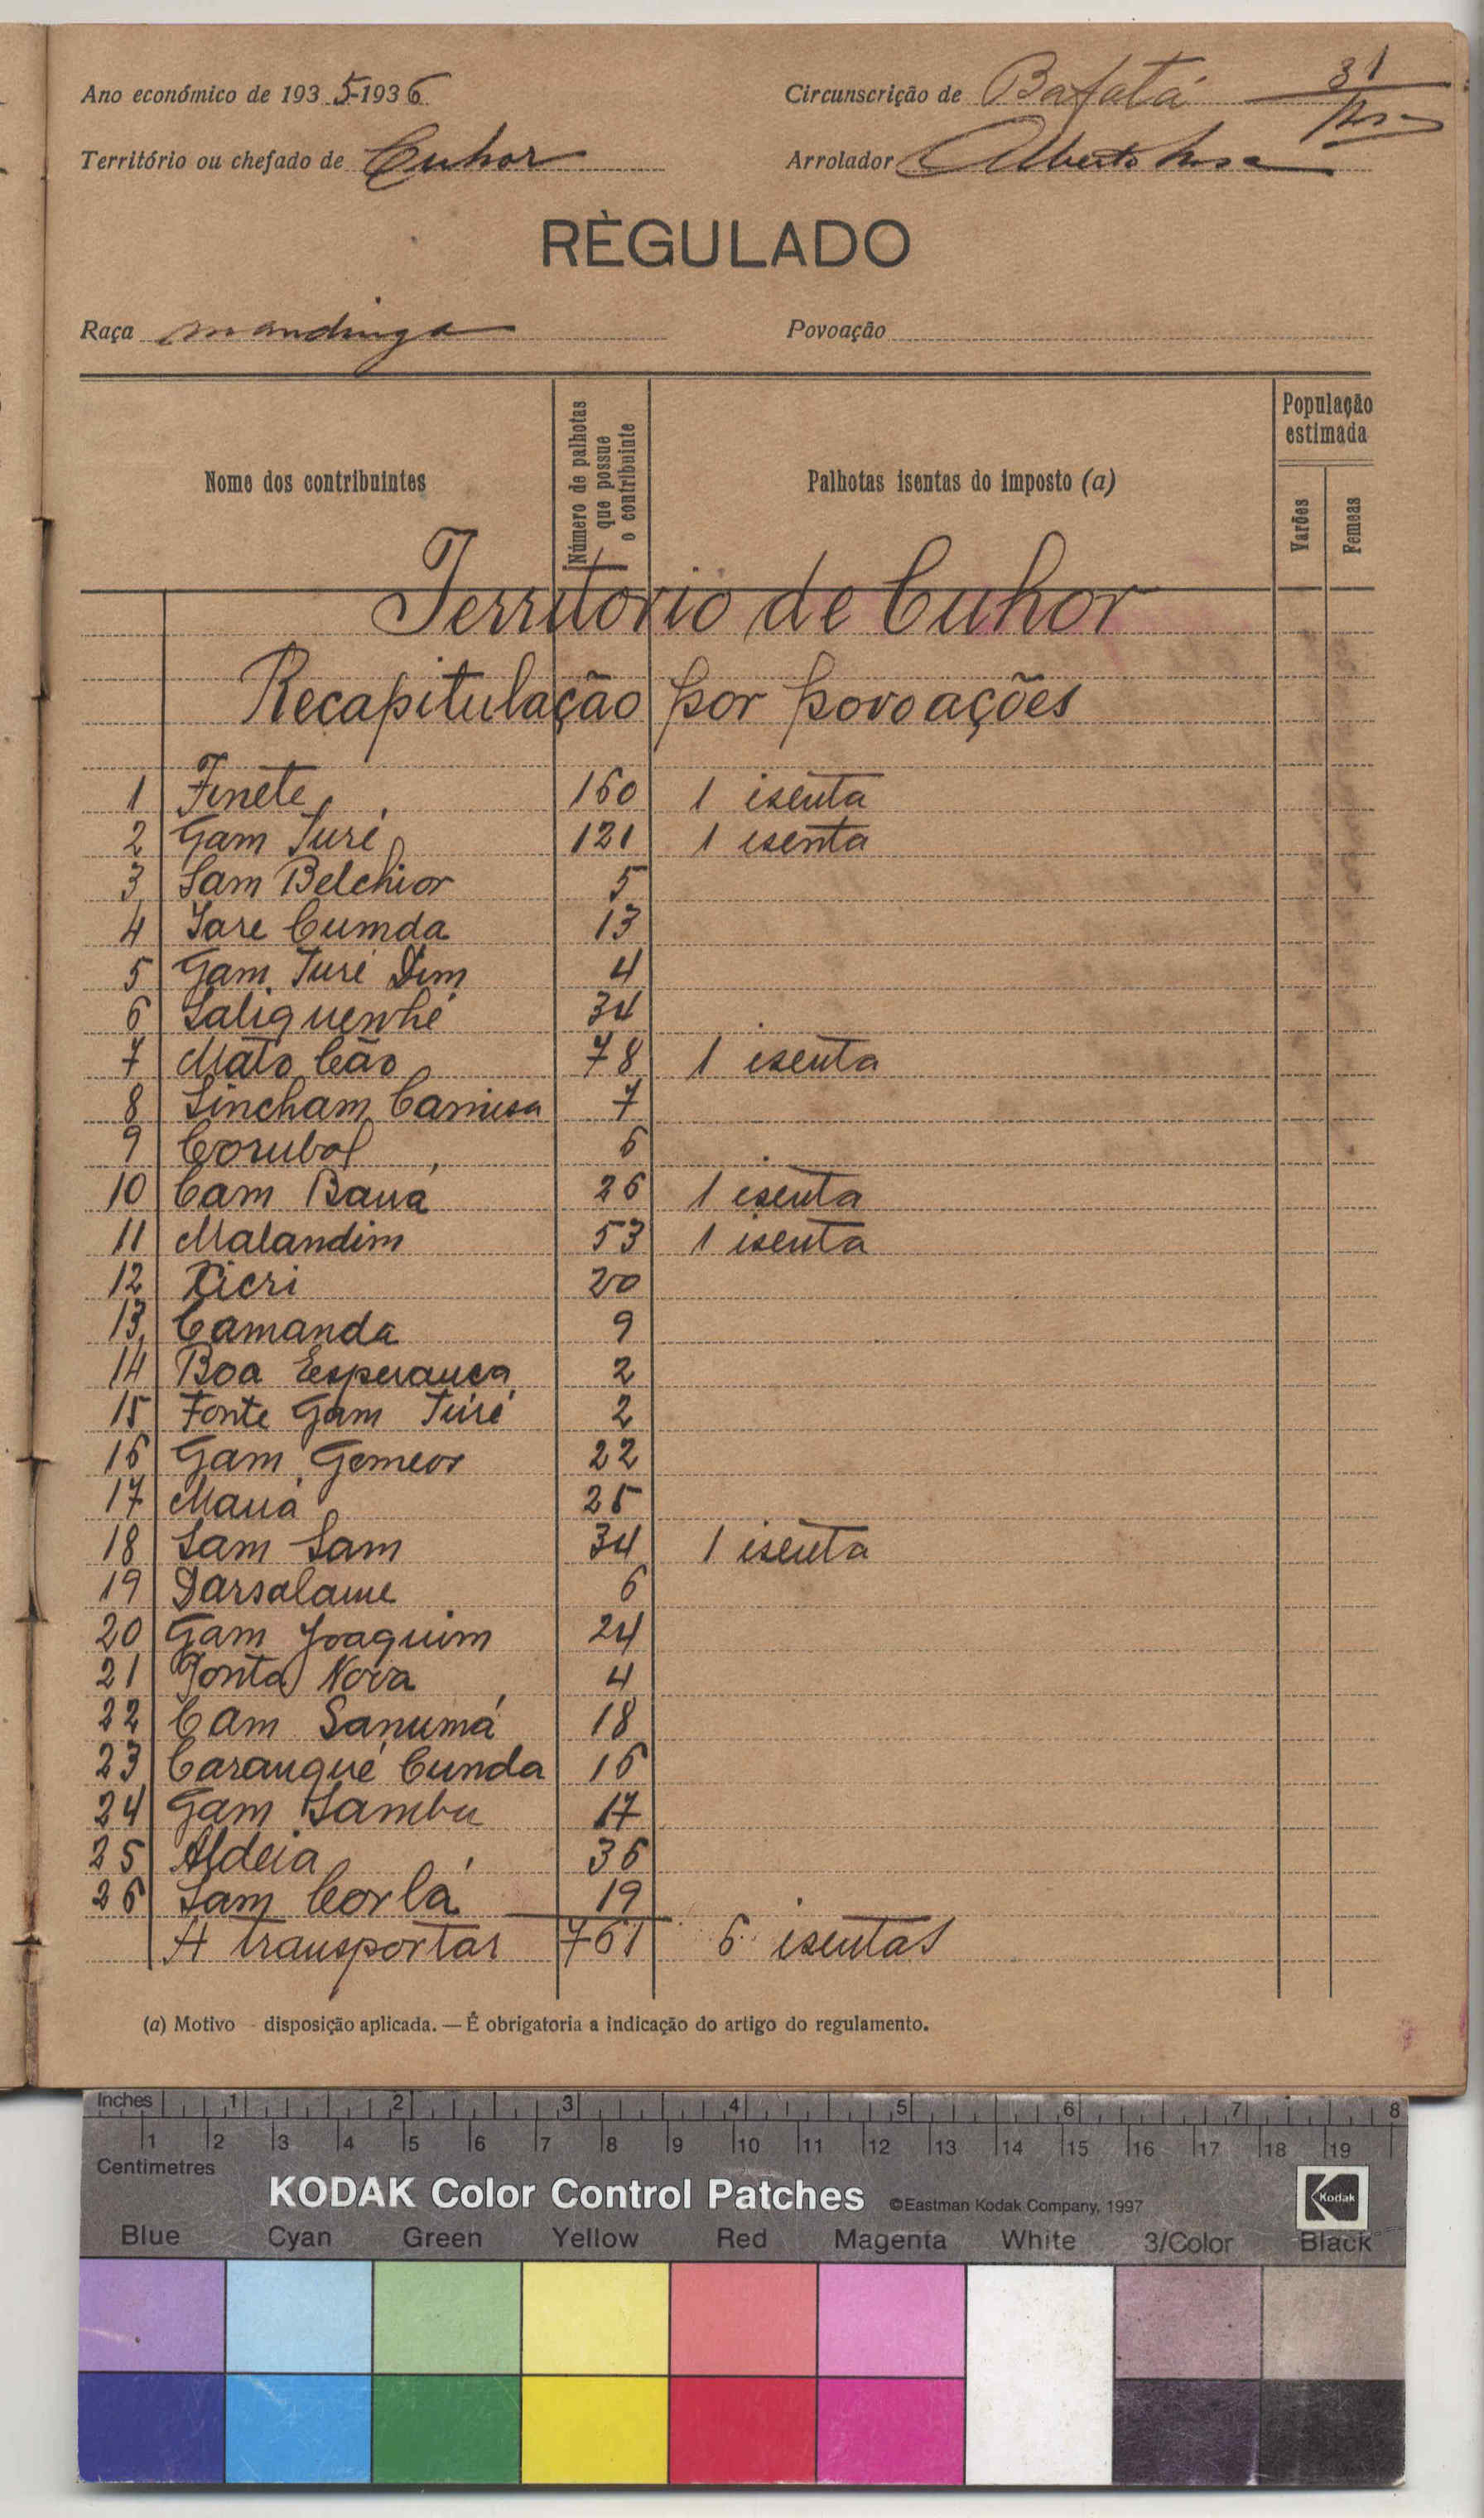 Ano económico de 1935-1936 Circunscrição de Bafatá 31
Território ou chefado de Cuhor Arrolador Alberto
RÈGULADO
Raça mandinga Povoação
Nome dos contribuintes
Número de palhotas que possue o contribuinte
Palhotas isentas do imposto (a)
População estimada
Varões
Femeas
Territorio de Cuhor
Recapitulação por povoações
1 Finete 160 1 isenta
2 Gam Turé 121 1 isenta
3 Sam Belchior 5
4 Sare Cumda 13
5 Gam Turé Dim 4
6 Saliquenhé 34
7 Mato Cão 78 1 isenta
8 Sincham Camisa 7
9 Corubal 6
10 Cam Baná 26 1 isenta
11 Malandim 53 1 isenta
12 Ticri 20
13 Camanda 9
14 Boa Esperança 2
15 Fonte Gam Turé 2
16 Gam Gemeos 22
17 Maná 25
18 Sam Sam 34 1 isenta
19 Darsalame 6
20 Gam Joaquim 24
21 Ponta Nova 4
22 Cam Sanumá 18
23 Caranqué Cunda 16
24 Gam Sambu 17
25 Aldeia 36
26 Sam Corlá 19
A transportar 761 6 isentas
(a) Motivo - disposição aplicada. — É obrigatoria a indicação do artigo do regulamento.
Inches 1 2 3 4 5 6 7 8
1 2 3 4 5 6 7 8 9 10 11 12 13 14 15 16 17 18 19
Centimetres
KODAK Color Control Patches ©Eastman Kodak Company, 1997 Kodak
Blue Cyan Green Yellow Red Magenta White 3/Color Black